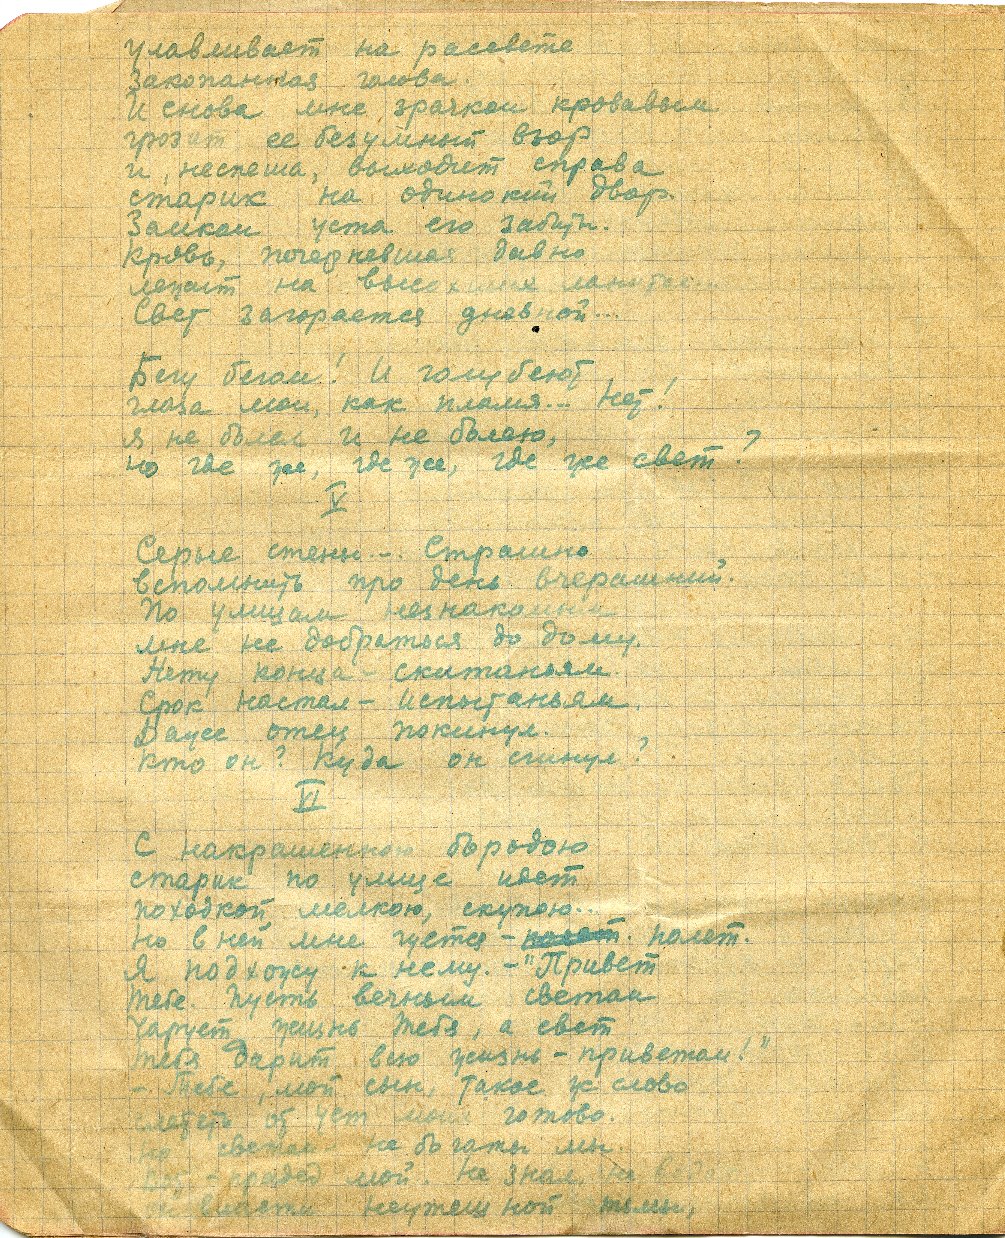 улавливает на рассвете
закопанная голова.
И снова мне зрачком кровавым
грозит ее безумный взор
и, неспеша, выходит справа
старик на одинокий двор.
Замком уста его забиты.
Кровь, почерневшая давно
лежит на высохших ланитах
Свет загорается дневной...
Бегу бегом! И голубеют
глаза мои, как пламя... Нет!
я не болел и не болею,
но где же, где же, где же свет?
V
Серые стены... Страшно
вспомнить про день вчерашний.
По улицам незнакомым
мне не добраться до дому.
Нету конца скитаньям.
Срок настал - испытаньям.
Даусе отец покинул.
Кто он? Куда он сгинул?
VI
С накрашенною бородою
старик по улице идет
походкой мелкою, скупою...
Но в ней мне чуется - полет.
Я подхожу к нему. - "Привет
тебе. Пусть вечным светом
чарует жизнь тебя, а свет
тебя дарит всю жизнь - приветом!"
- Тебе, мой сын, такое ж слово
слететь от уст моих готово.
Но светом не богаты мы.
прадед мой. Не знал, не
власти неутешной тьмы,